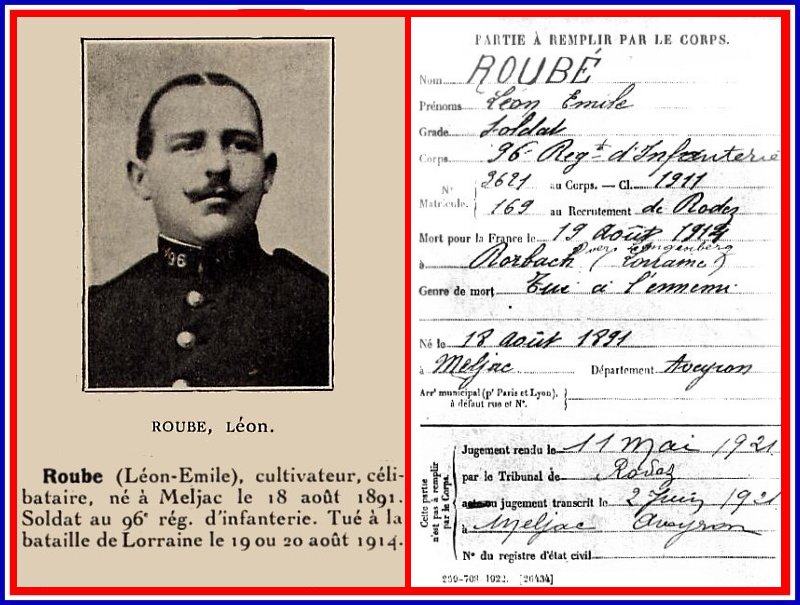 96
ROUBE, Léon.
Roube (Léon-Emile), cultivateur, céli-
bataire, né à Meljac le 18 août 1891.
Soldat au 96e rég. d'infanterie. Tué à la
bataille de Lorraine le 19 ou 20 août 1914.
PARTIE À REMPLIR PAR LE CORPS.
Nom ROUBÉ
Prénoms Léon Emile
Grade Soldat
Corps 96e Regt d'Infanterie
N° Matricule. { 3621 au Corps. — Cl. 1911
169 au Recrutement de Rodez
Mort pour la France le 19 août 1914
à Rorbach (Lorraine)
Genre de mort Tué à l'ennemi
Né le 18 août 1891
à Meljac Département Aveyron
Arrt municipal (pr Paris et Lyon), à défaut rue et N°. {
Cette partie n'est pas à remplir par le Corps. {
Jugement rendu le 11 Mai 1921
par le Tribunal de Rodez
ou jugement transcrit le 2 Juin 1921
à Meljac Aveyron
N° du registre d'état civil
[26434]